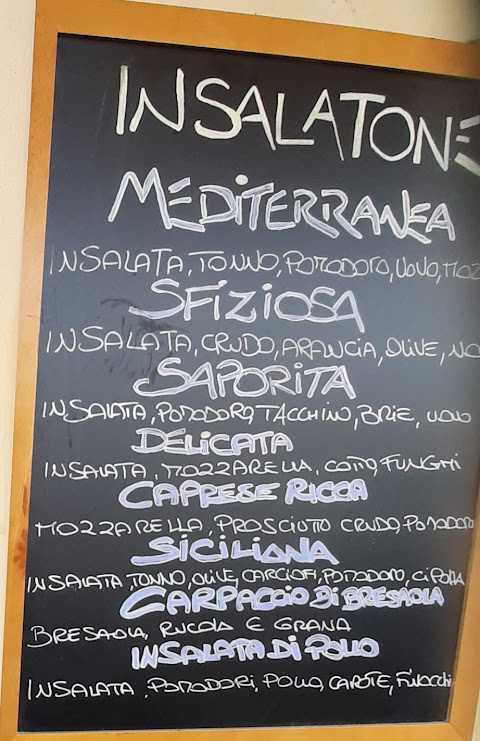 INSALATONE
MEDITERRANEA
INSALATA, TONNO, POMODORO, UOVO, MOZ
SFIZIOSA
INSALATA, CRUDO, ARANCIA, OLIVE, NO
SAPORITA
INSALATA, POMODORO, TACCHINO, BRIE, UOVO
DELICATA
INSALATA, MOZZARELLA, COTTO, FUNGHI
CAPRESE RICCA
MOZZARELLA, PROSCIUTTO CRUDO, POMODORO
SICILIANA
INSALATA, TONNO, OLIVE, CARCIOFI, POMODORO, CIPOLLA
CARPACCIO DI BRESAOLA
BRESAOLA, RUCOLA E GRANA
INSALATA DI POLLO
INSALATA, POMODORI, POLLO, CAROTE, FINOCCHI